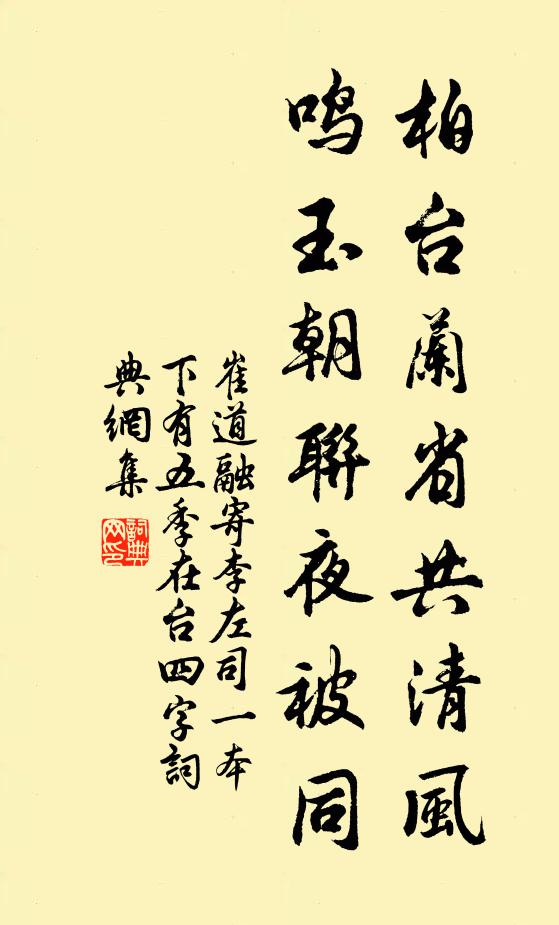 柏台蘭省共清風
鸣玉朝聯夜被同
崔道融寄李左司一本
下有五季在台四字詞
典網集
詞典网印